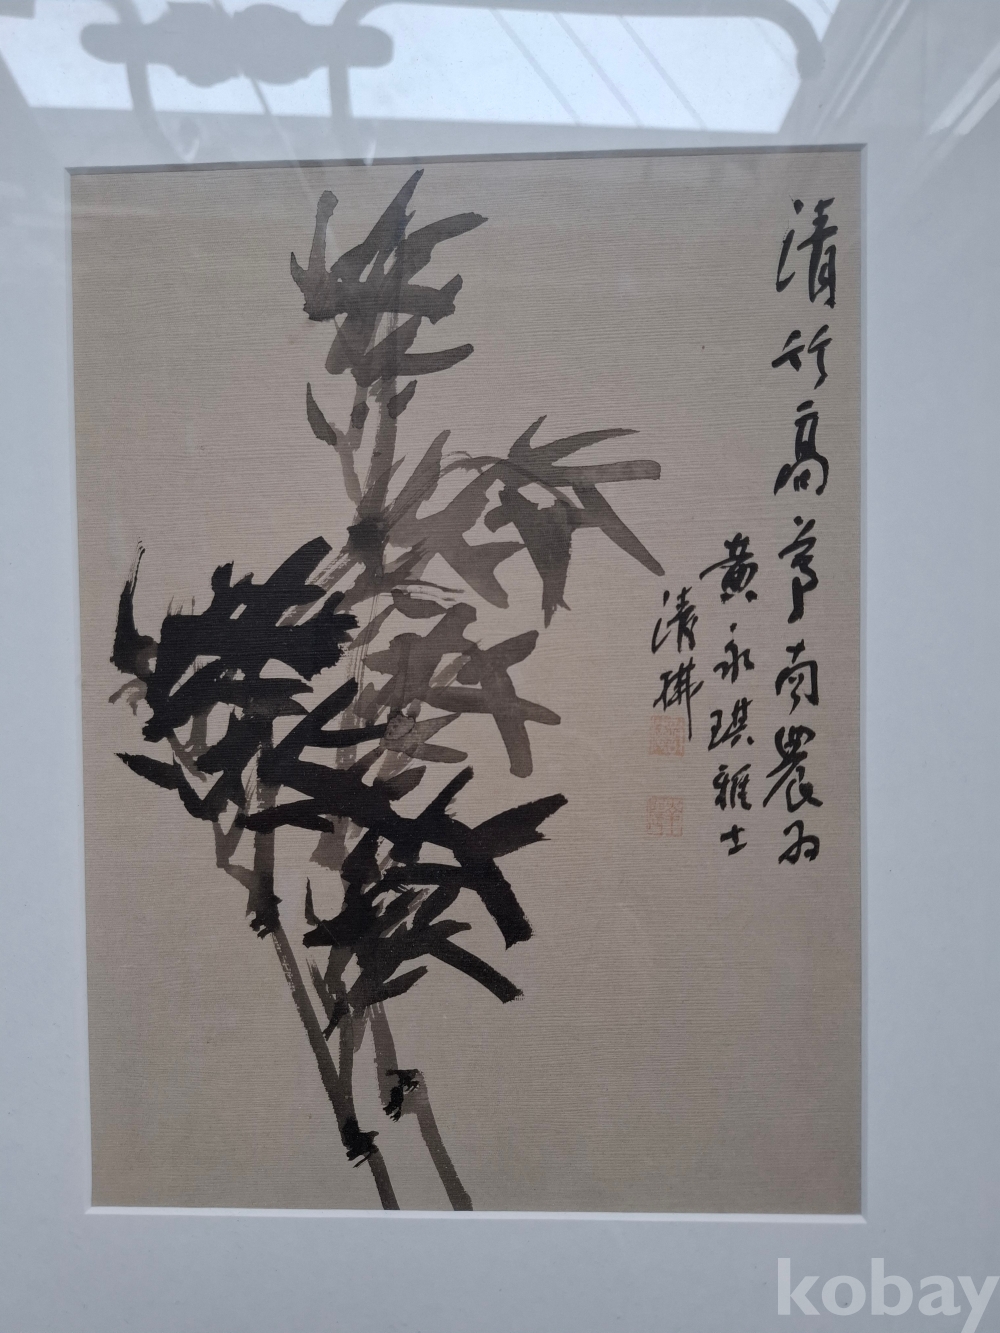 清竹高亭南農為
黃永琪雅士
清拂
kobay